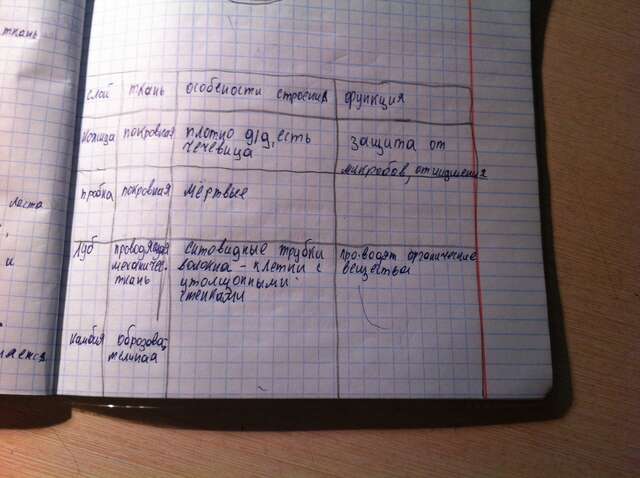 ткань
слой ткань особености строения функция
кожица покровная плотно д/д, есть защита от
чечевица
микробов,
пробка покровная мёртвые
листа
и
Луб проводящая ситовидные трубки проводят органические
механичес. волокна - клетки с вещества
ткань утолщонными
стенками
камбия образова
тельная